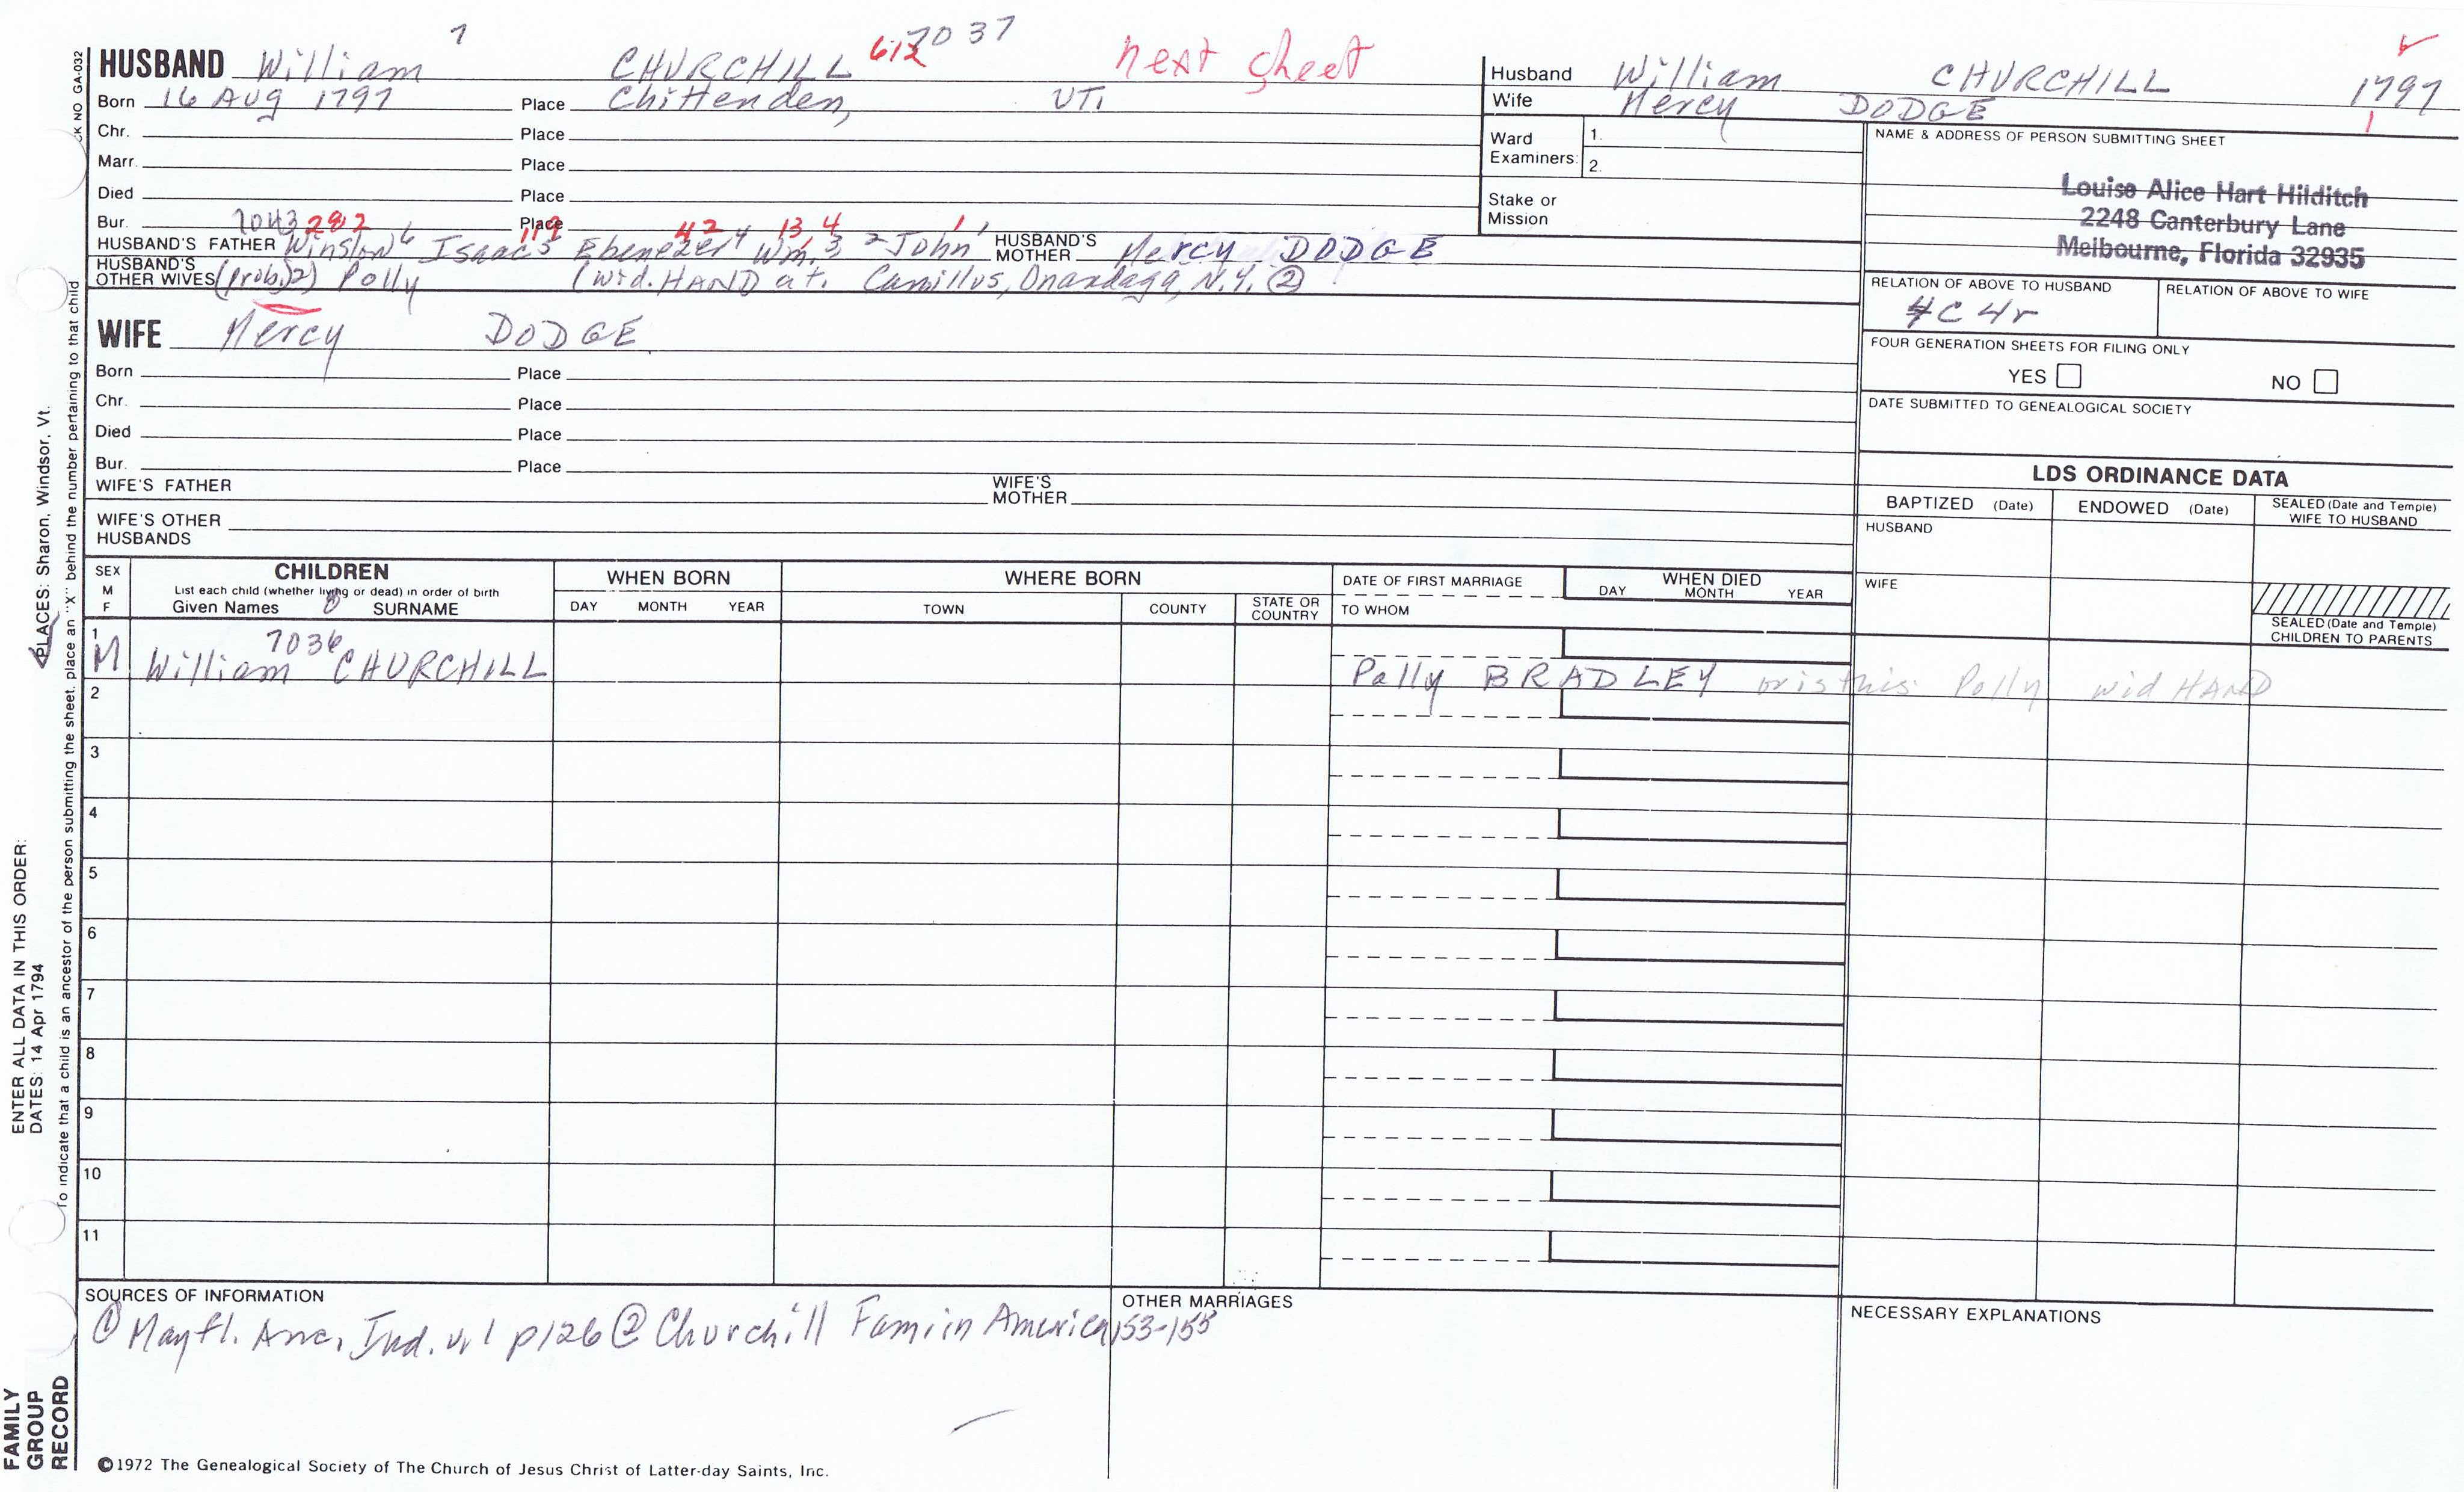 7
612 7037
next sheet
HUSBAND William CHURCHILL
Born 16 Aug 1797 Place Chittenden, VT.
Chr. Place
Marr. Place
Died Place
Bur. Place
7043 282 119 42 13 4 1
HUSBAND'S FATHER Winslow 6 Isaac 5 Ebenezer 4 Wm. 3 2 John 1 HUSBAND'S MOTHER Mercy DODGE
HUSBAND'S OTHER WIVES (prob.) 2) Polly (wid. HAND at. Camillus, Onandaga, N.Y. ②
WIFE Mercy DODGE
Born Place
Chr. Place
Died Place
Bur. Place
WIFE'S FATHER WIFE'S MOTHER
WIFE'S OTHER HUSBANDS
Husband William CHURCHILL 1797
Wife Mercy DODGE 1
Ward Examiners: 1.
2.
Stake or Mission
NAME & ADDRESS OF PERSON SUBMITTING SHEET
Louise Alice Hart Hilditch
2248 Canterbury Lane
Melbourne, Florida 32935
RELATION OF ABOVE TO HUSBAND RELATION OF ABOVE TO WIFE
4C 4r
FOUR GENERATION SHEETS FOR FILING ONLY
YES NO
DATE SUBMITTED TO GENEALOGICAL SOCIETY
LDS ORDINANCE DATA
BAPTIZED (Date) ENDOWED (Date) SEALED (Date and Temple) WIFE TO HUSBAND
HUSBAND
WIFE
SEALED (Date and Temple)
CHILDREN TO PARENTS
SEX M F
CHILDREN
List each child (whether living or dead) in order of birth
Given Names SURNAME
WHEN BORN
DAY MONTH YEAR
WHERE BORN
TOWN COUNTY STATE OR COUNTRY
DATE OF FIRST MARRIAGE
TO WHOM
WHEN DIED
DAY MONTH YEAR
1
7036
M William CHURCHILL Polly BRADLEY or is this Polly wid HAND
2
3
4
5
6
7
8
9
10
11
SOURCES OF INFORMATION
① Mayfl. Anc. Ind. v1 p126 ② Churchill Fam in America 153-155
OTHER MARRIAGES
NECESSARY EXPLANATIONS
©1972 The Genealogical Society of The Church of Jesus Christ of Latter-day Saints, Inc.
CK NO GA-032
To indicate that a child is an ancestor of the person submitting the sheet, place an "X" behind the number pertaining to that child
PLACES: Sharon, Windsor, Vt.
ENTER ALL DATA IN THIS ORDER:
DATES: 14 Apr 1794
FAMILY
GROUP
RECORD